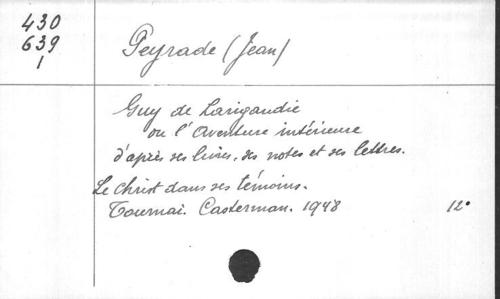 430
639
1
Peyrade (Jean)
Guy de Larigaudie
ou l'Aventure intérieure
d'après ses livres, ses notes et ses lettres.
Le Christ dans ses témoins.
Tournai. Casterman. 1948 12°